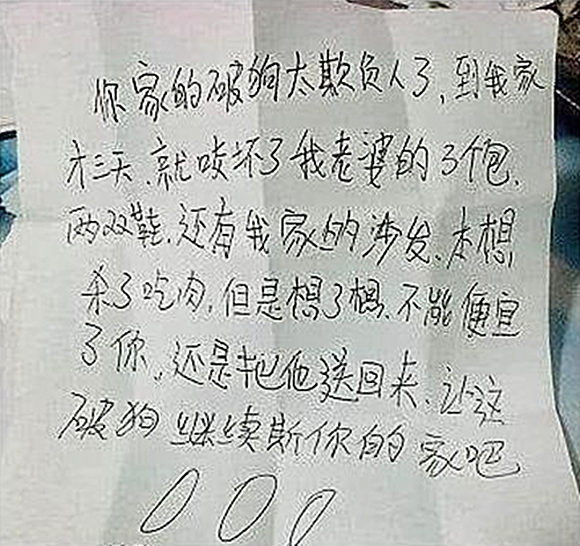 你家的破狗太欺负人了,到我家
才三天.就咬坏了我老婆的3个包.
两双鞋.还有我家的沙发.本想
杀了吃肉.但是想了想.不能便宜
了你..还是把他送回来.让这
破狗继续斯你的家吧